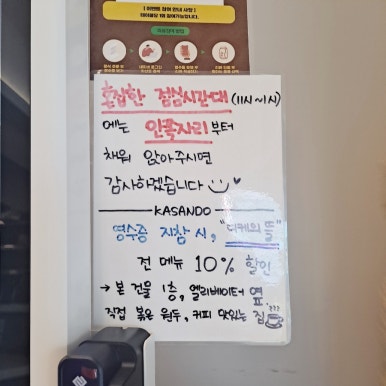 [이벤트 참여 안내 사항]
혼잡한 점심시간대 (11시~1시)
에는 안쪽자리부터
채워 앉아주시면
감사하겠습니다
KASANDO
영수증 지참 시, "디케의 뜰"
전 메뉴 10% 할인
→ 본 건물 1층, 엘리베이터 옆
직접 볶은 원두, 커피 맛있는 집